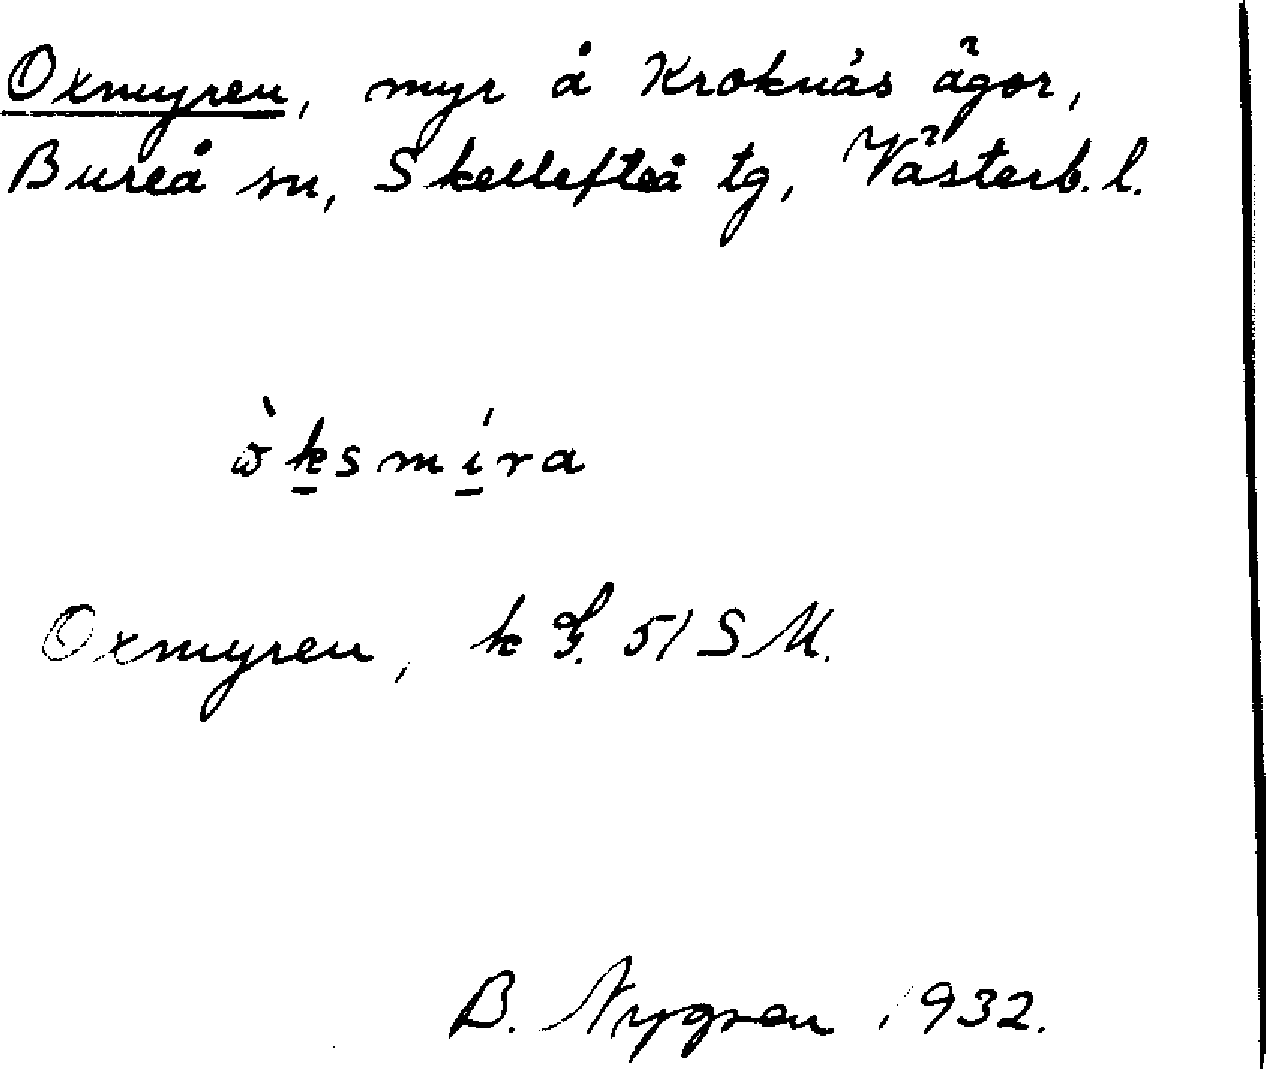 Oxmyren, myr å Kroknäs ägor,
Bureå sn, Skellefteå tg, Västerb. l.
òksmíra
Oxmyren, k 51 SM.
B. Nygren 1932.